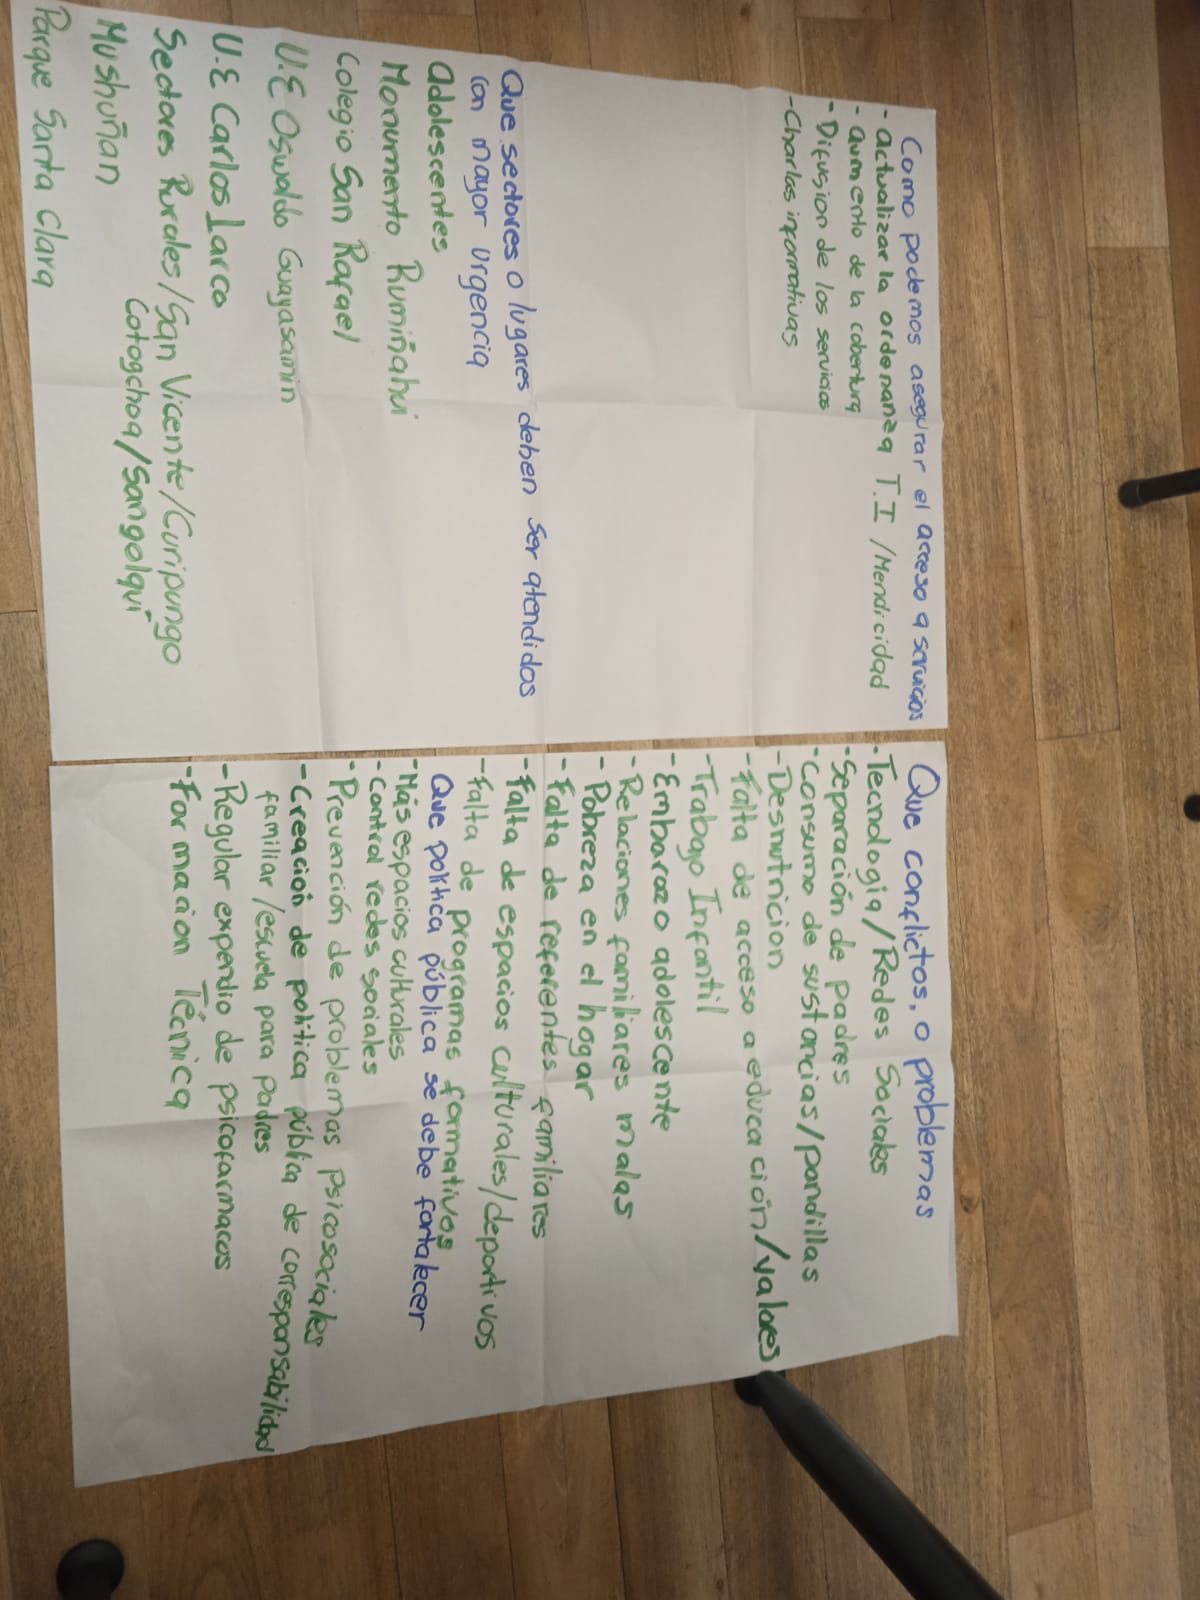 Como podemos asegurar el acceso a servicios
- actualizar la ordenanza T.I /Mendicidad
- aumento de la cobertura
- Difusion de los servicios
- Charlas informativas
Que sectores o lugares deben ser atendidos
con mayor urgencia
Adolescentes
Monumento Rumiñahui
Colegio San Rafael
U.E Oswaldo Guayasamin
U.E Carlos Larco
Sectores Rurales/San Vicente/Curipungo
Cotogchoa/Sangolquí
Mushuñan
Parque Santa Clara
Que conflictos, o problemas
- Tecnologia/Redes Sociales
- Separación de padres
- Consumo de sustancias/pandillas
- Desnutricion
- Falta de acceso a educación/valores
- Trabajo Infantil
- Embarazo adolescente
- Relaciones familiares malas
- Pobreza en el hogar
- Falta de referentes familiares
- Falta de espacios culturales/deportivos
- Falta de programas formativos
Que politica pública se debe fortalecer
- Más espacios culturales
- Control redes sociales
- Prevención de problemas psicosociales
- Creación de política pública de corresponsabilidad
familiar/escuela para padres
- Regular expendio de psicofarmacos
- Formacion Técnica